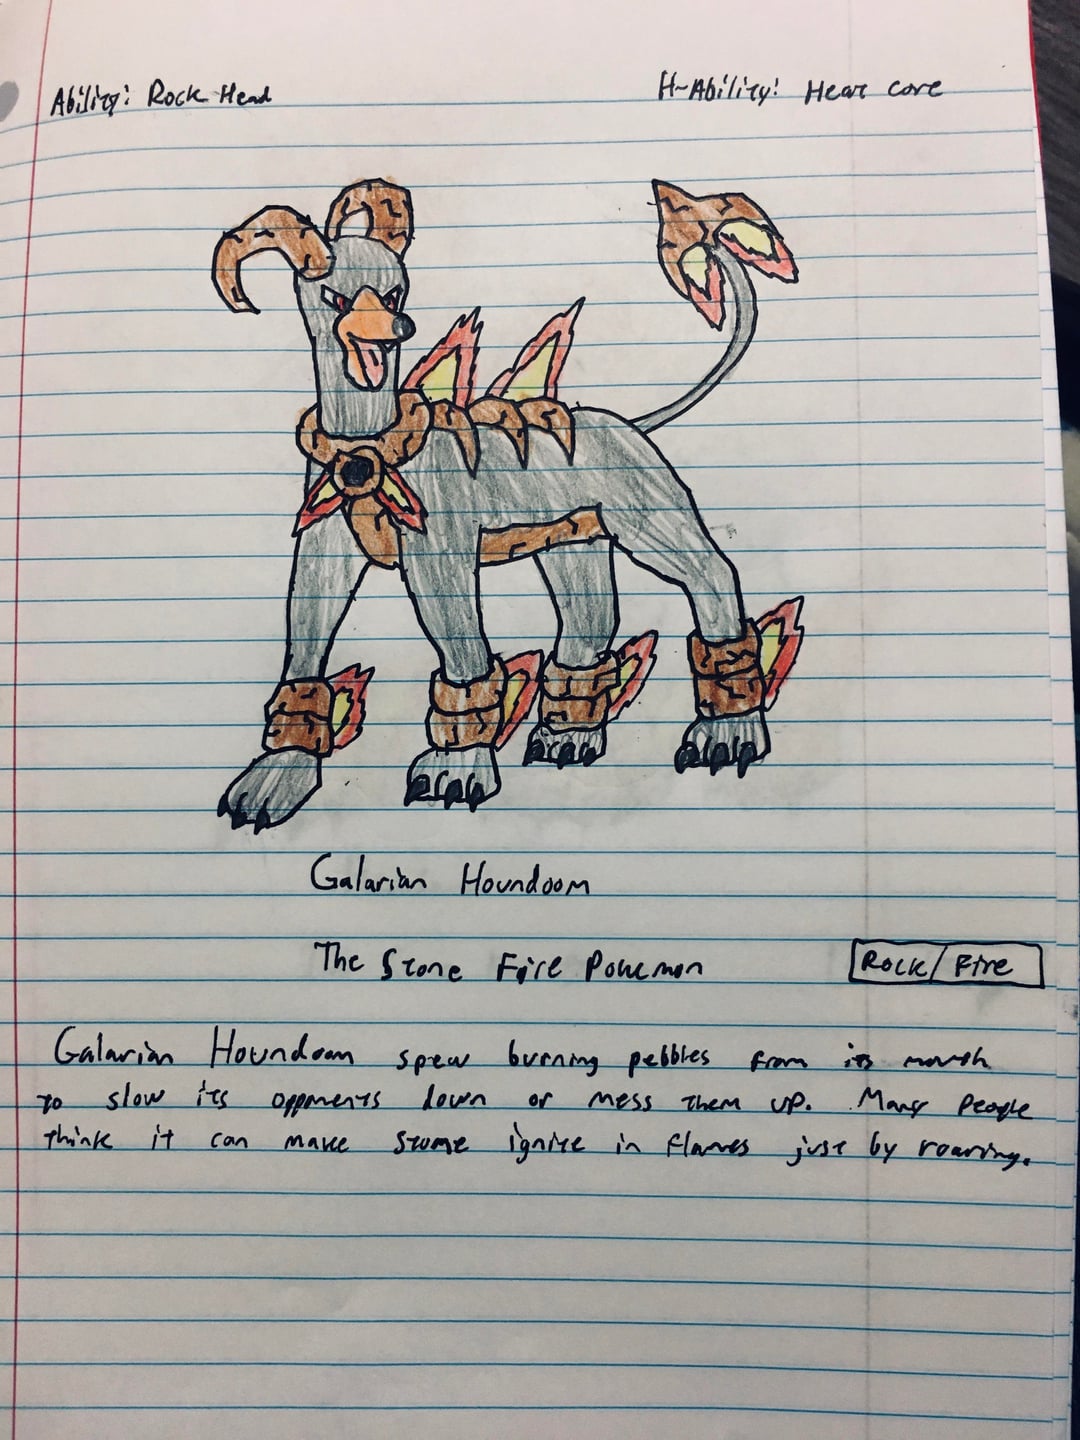 Ability: Rock Head
H-Ability: Heat core
Galarian Houndoom
The Stone Fire Pokemon
Rock/Fire
Galarian Houndoom spew burning pebbles from its mouth
to slow its opponents down or mess them up. Many people
think it can make stone ignite in flames just by roaring.